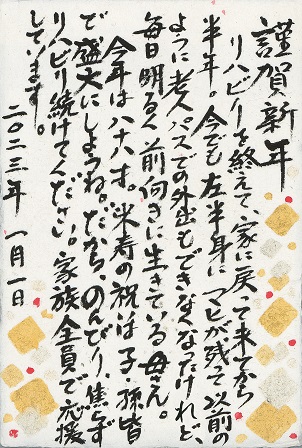 謹賀新年
リハビリを終えて、家に戻って来てから
半年。今でも左半身にマヒが残って以前の
ように老人パスでの外出もできなくなったけれど
毎日明るく前向きに生きている母さん。
今年は八十八才。米寿の祝は子・孫皆
で盛大にしようね。だから、のんびり、焦らず
リハビリ続けてください。家族全員で応援
しています。
二〇二三年 一月一日